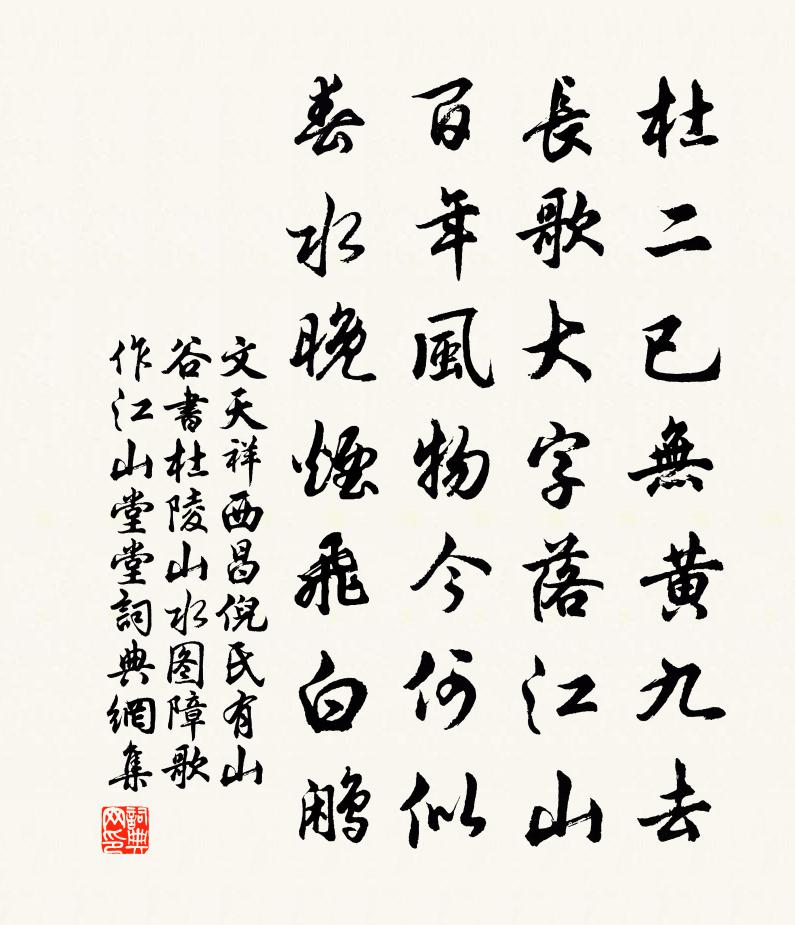 杜二已無黃九去
長歌大字落江山
百年風物今何似
春水晚煙飛白鷴
文天祥西昌倪氏有山
谷書杜陵山水图障歌
作江山堂堂詞典網集
詞典网印